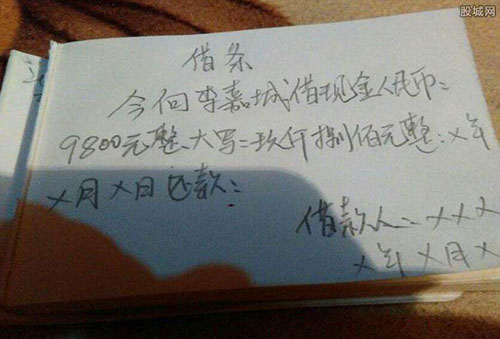 股城网
借条
今向李嘉城借现金人民币:
9800元整、大写:玖仟捌佰元整:X年
X月X日还款:
借款人:XXX
X年X月X